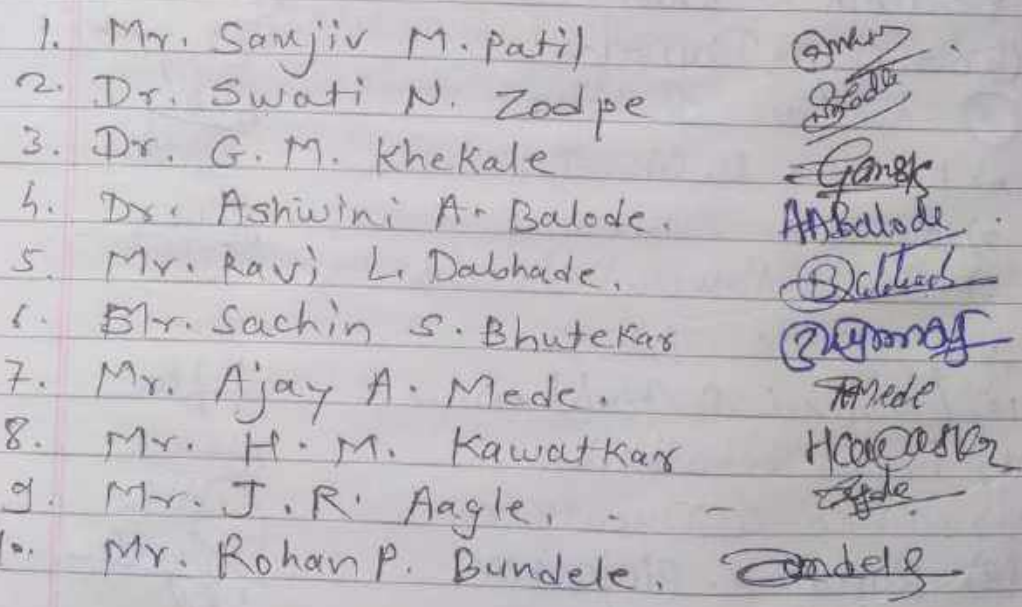 1. Mr. Sanjiv M. Patil
2. Dr. Swati N. Zodpe
3. Dr. G. M. Khekale
4. Dr. Ashwini A. Balode. AABalode
5. Mr. Ravi L. Dabhade.
6. Mr. Sachin S. Bhutekar
7. Mr. Ajay A. Mede. AMede
8. Mr. H. M. Kawatkar
9. Mr. J. R. Aagle.
10. Mr. Rohan P. Bundele.